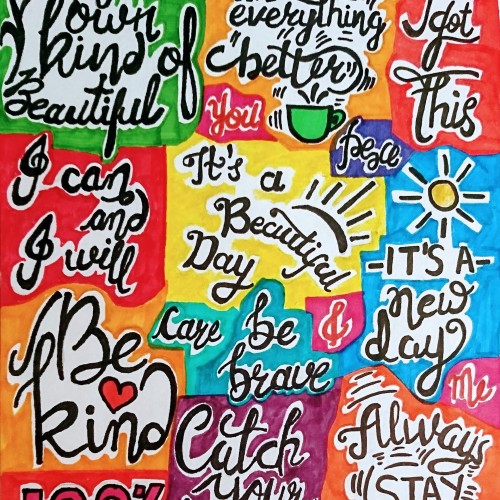 own
kind of
Beautiful
everything
better
I got
This
You
I can
and
I will
It's a
Beautiful
Day
IT'S A
new
day
Be
kind
Care be
brave
&
me
Catch
your
Always
STAY